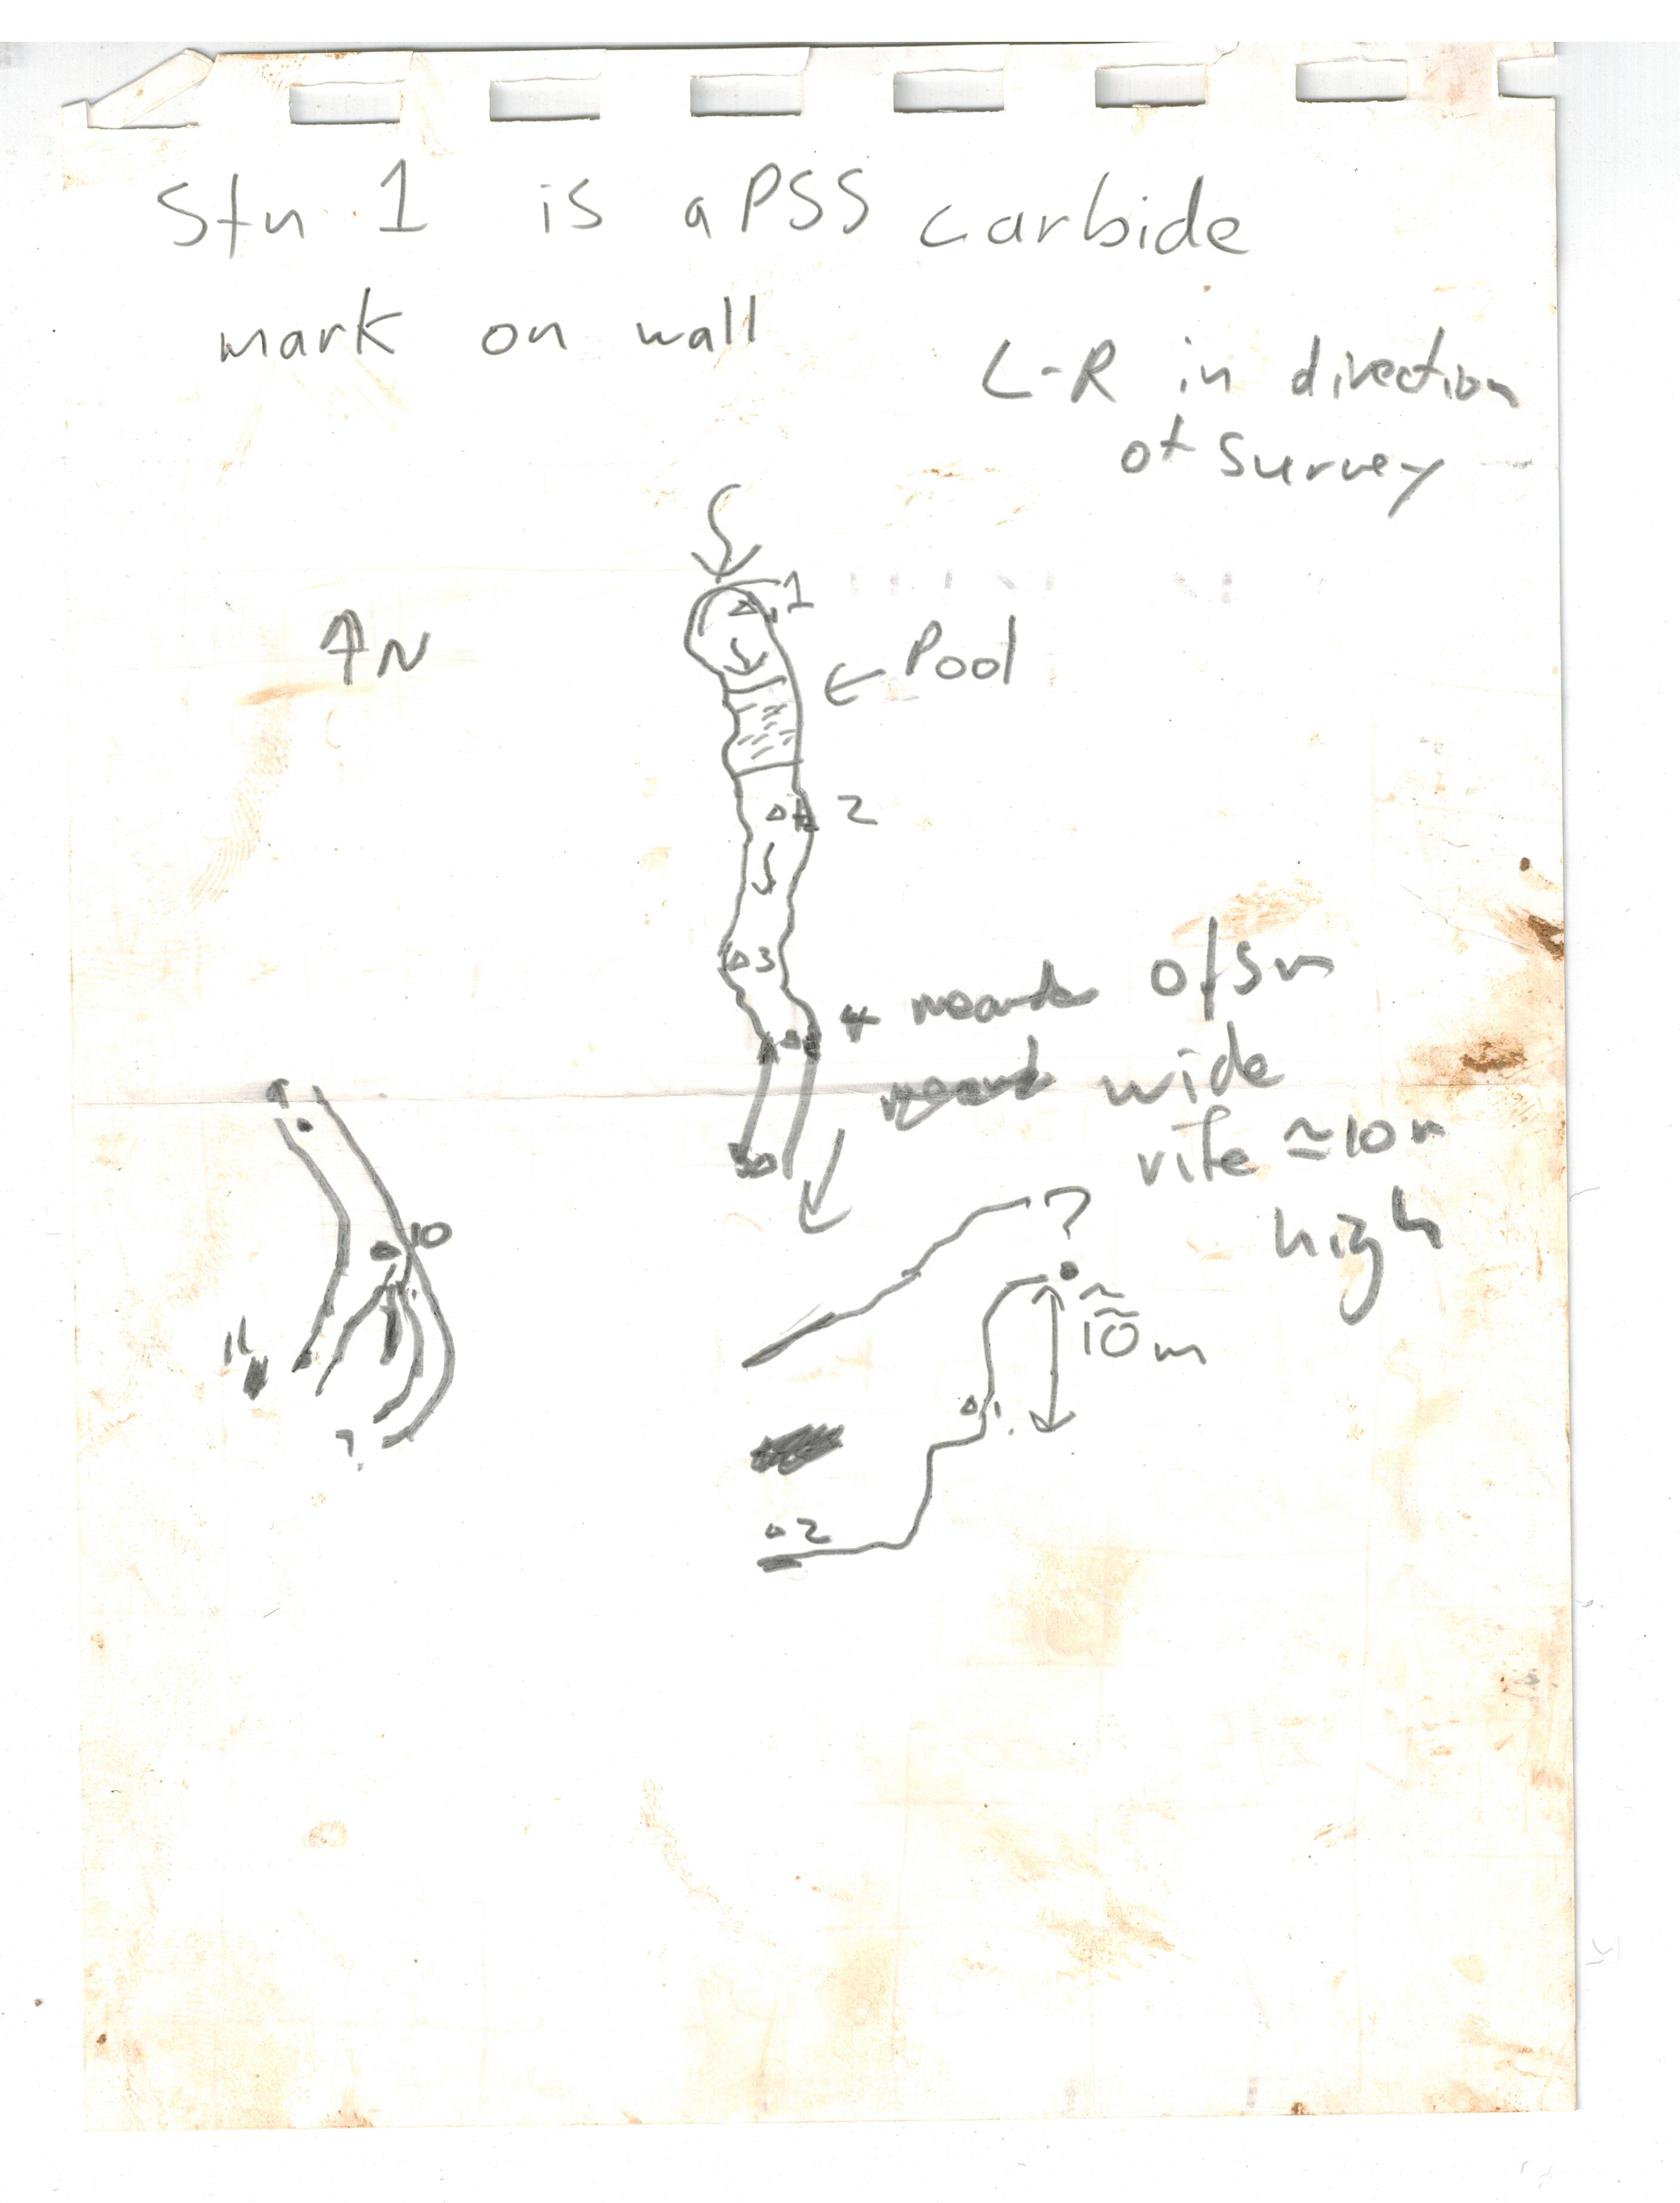 Stn 1 is a PSS carbide
mark on wall
L-R in direction
of survey
1
↑ N
← Pool
2
3
4
wide
≃10m
high
10
11
?
?
≈10m
1
2